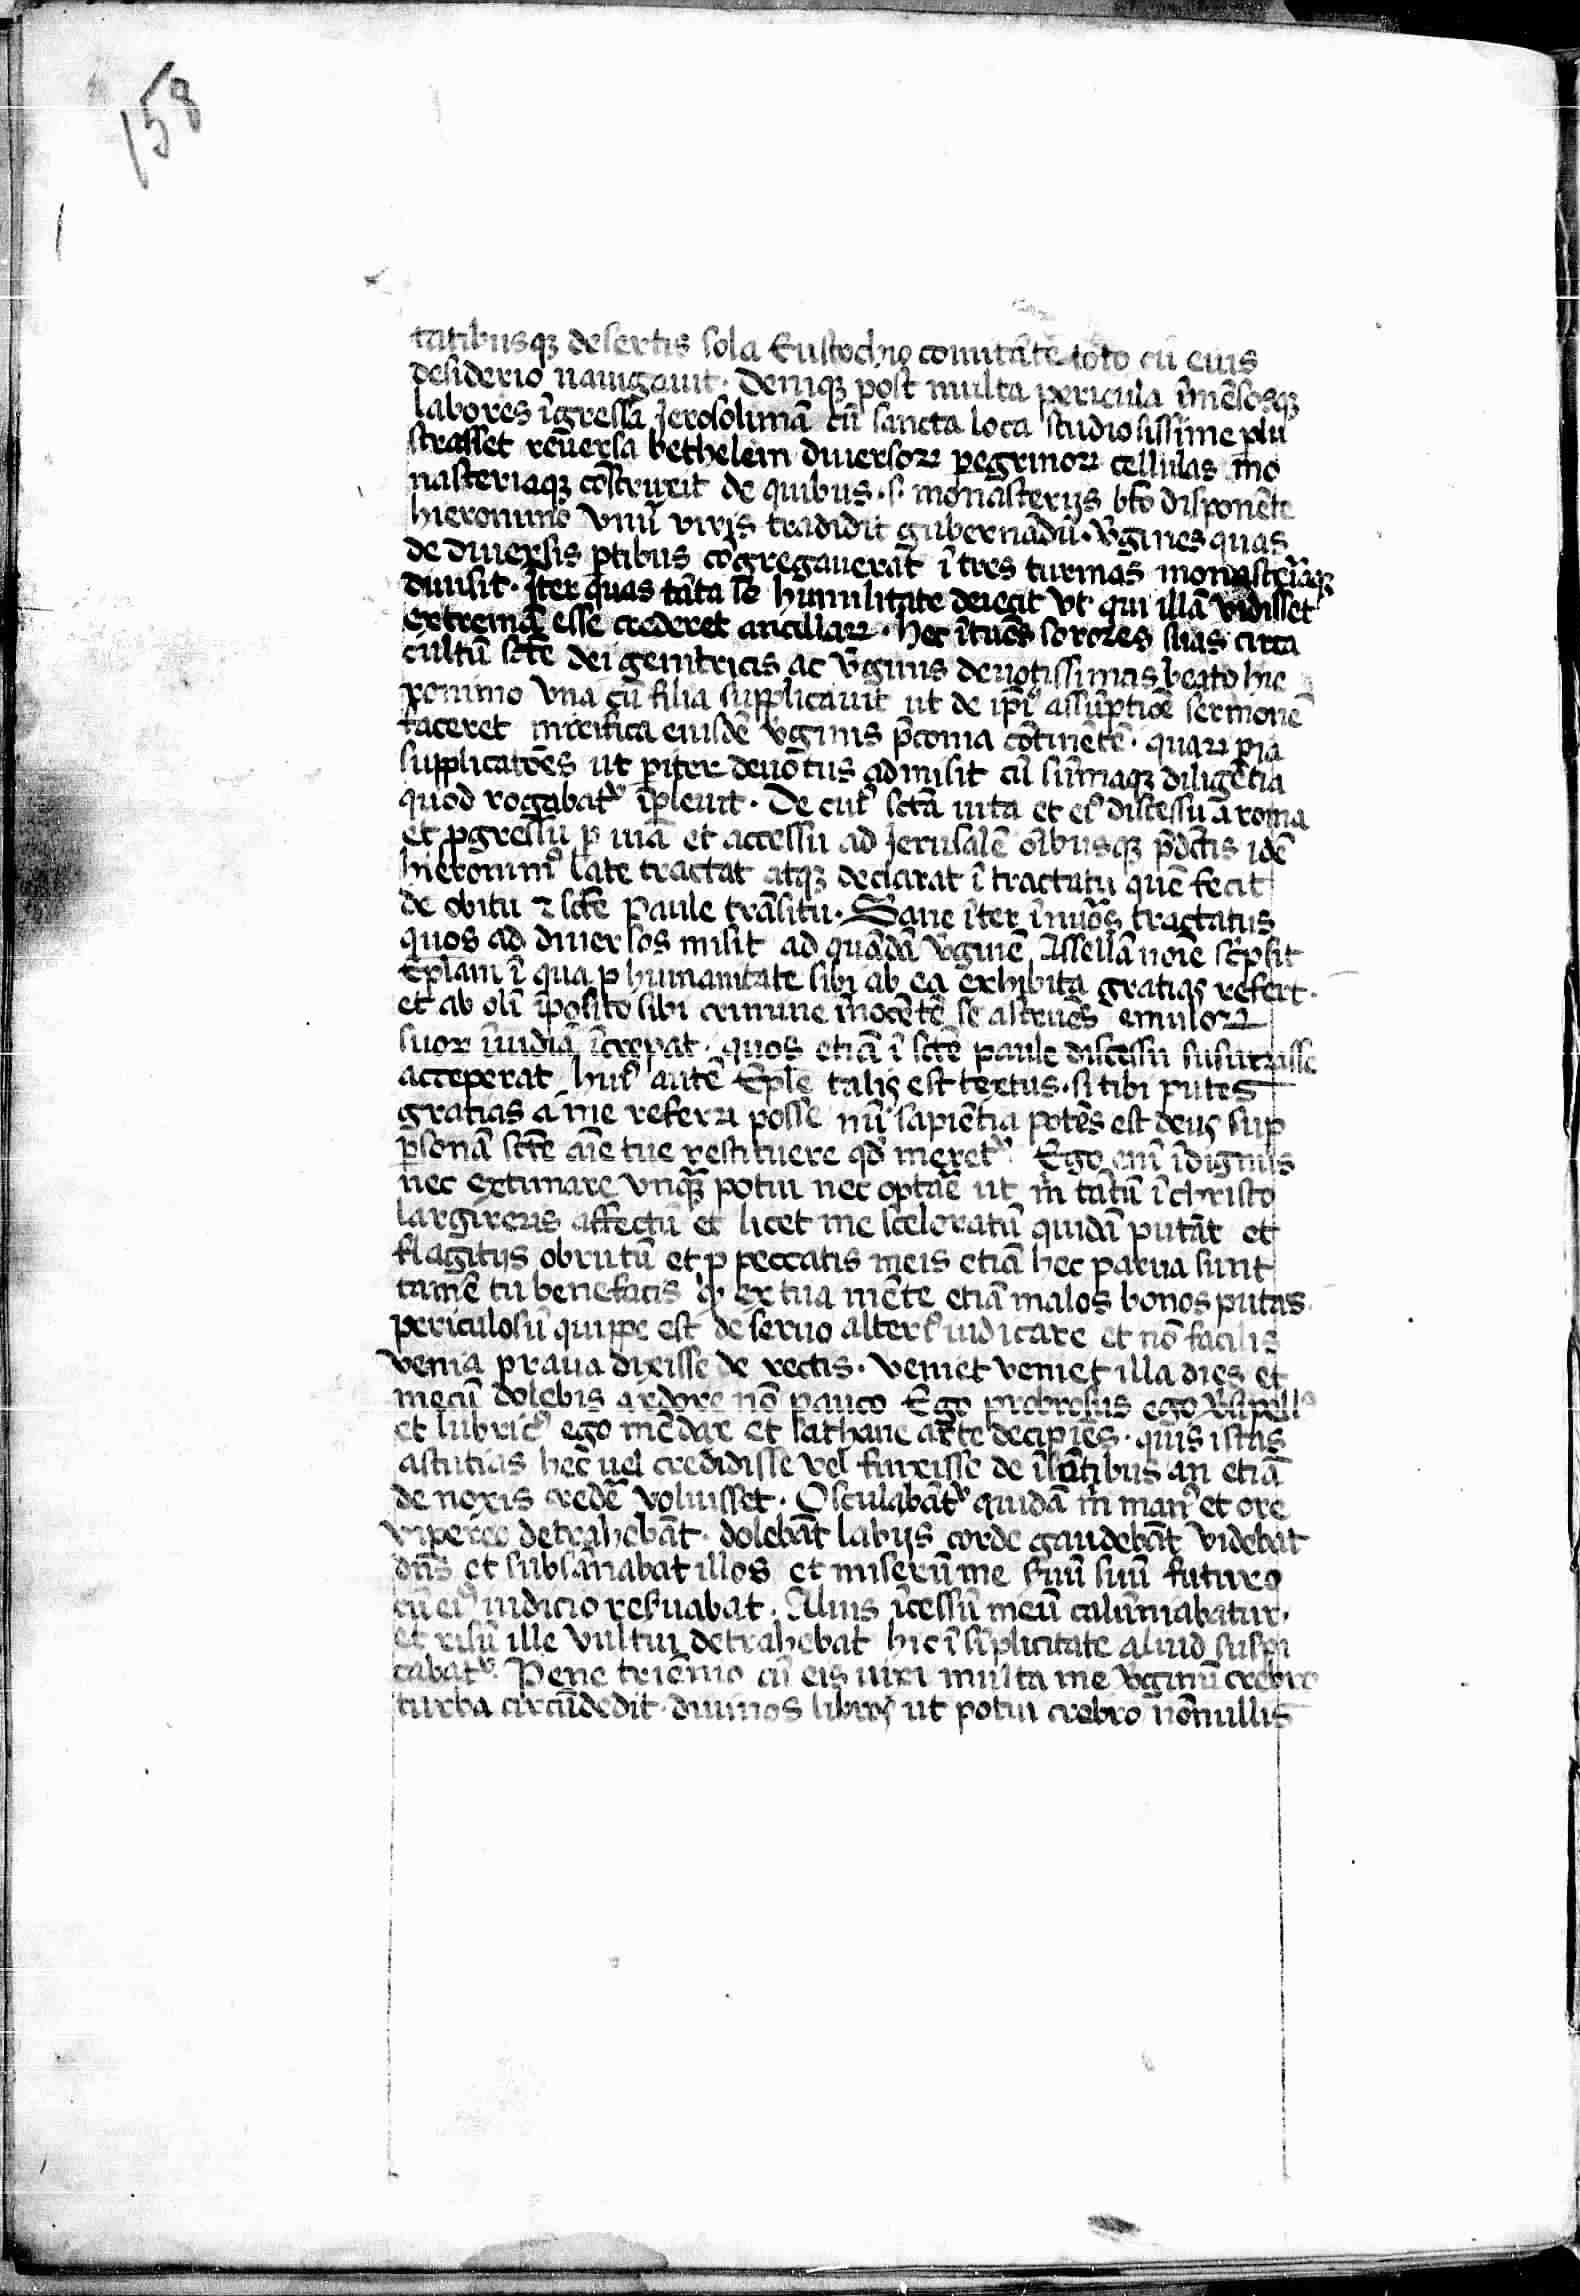 158
tatibusqꝫ desertis sola Eustochio comitãte toto cũ euis
desiderio nauigauit. Deniqꝫ post multa pericula ĩmẽsosqꝫ
labores ĩgressa Jerosolimã cũ sancta loca studiosissime plu
strasset reũersa bethelem diuersoꝝ pegrinoꝝ cellulas mo
nasteriaqꝫ cõstruxit de quibus .s. monasterijs bt̃o disponẽte
hieronimo vnũ viris tradidit gubernãdũ. ṽgines quas
de diuersis ptibus cõgregauerãt ĩ tres turmas monasteriaqꝫ
diuisit. Ĩter quas tãta se humilitate deiecit vt qui illã vidisset
extremã esse crederet ancillaꝝ. hec ĩtuẽs sorores suas circa
cultũ scẽ dei genitricis ac ṽginis deuotissimas beato hie
ronimo vna cũ filia supplicauit ut de ip̃iꝰ assũptiõe sermonẽ
faceret mirifica eiusdẽ ṽginis p̃conia cõtinẽtẽ. quaꝝ pia
supplicatõẽs ut piter deuotus admisit cũ sũmaqꝫ diligẽtia
quod rogabatᷣ ĩpleuit. De cuiꝰ sctã uita et eiꝰ discessu a roma
et ꝓgressu p uiã et accessu ad Jerusalẽ oĩbusqꝫ p̃dctis idẽ
hieronimꝰ late tractat atqꝫ declarat ĩ tractatu quẽ fecit
de obitu ⁊ scẽ Paule trãsitu. Sane ĩter ĩnũos tractatus
quos ad diuersos misit ad quãdã ṽginẽ Assellã noĩe sc̃psit
Ep̃lam ĩ qua ꝓ humanitate sibi ab ea exhibita gratias refert.
et ab olĩ ĩposito sibi crimine ĩnocẽtẽ se astruẽs emuloꝝ
suoꝝ ĩuidiã ĩcrepat. quos etiã ĩ scẽ paule discessu susurrasse
acceperat huiꝰ autẽ Ep̃le talis est textus. si tibi putes
gratias a me referri posse nũ sapiẽtia potẽs est deus sup
psonã scẽ aĩe tue restituere qd̃ meretᷣ. Ego enĩ ĩdignus
nec extimare vnqꝫ̃ potui nec optãẽ ut m̃ tãtũ ĩ christo
largireris affectũ et licet me sceleratũ quidã putãt et
flagitijs obrutũ et ꝓ peccatis meis etiã hec parua sunt
tamẽ tu benefacis ꝙ ex tua mẽte etiã malos bonos putas.
periculosũ quippe est de seruo alteriꝰ iudicare et nõ facilis
venia praua dixisse de rectis. veniet veniet illa dies et
mecũ dolebis ardore nõ pauco Ego probrosus ego ṽsipellꝰ
et lubricꝰ ego mẽdax et sathane arte decipiẽs. quis istas
astutias hec uel credidisse vel finxisse de ĩsõtibus an etiã
de noxis credẽ voluisset. Osculabãtᷣ quidã m̃ manꝰ et ore
vipereo detrahebãt. dolebãt labijs corde gaudebãt videbat
dñs et subsãnabat illos et miserũ me s̃uũ suũ futuro
cũ eiꝰ iudicio res̃uabat. Alius ĩcessũ meũ calũniabatur.
et risũ ille vultui detrahebat hic ĩ sĩplicitate aliud suspi
cabatᷣ. Pene triẽnio cũ eis uixi multa me ṽginũ crebro
turba circũdedit. diuinos libros ut potui crebro nõnullis